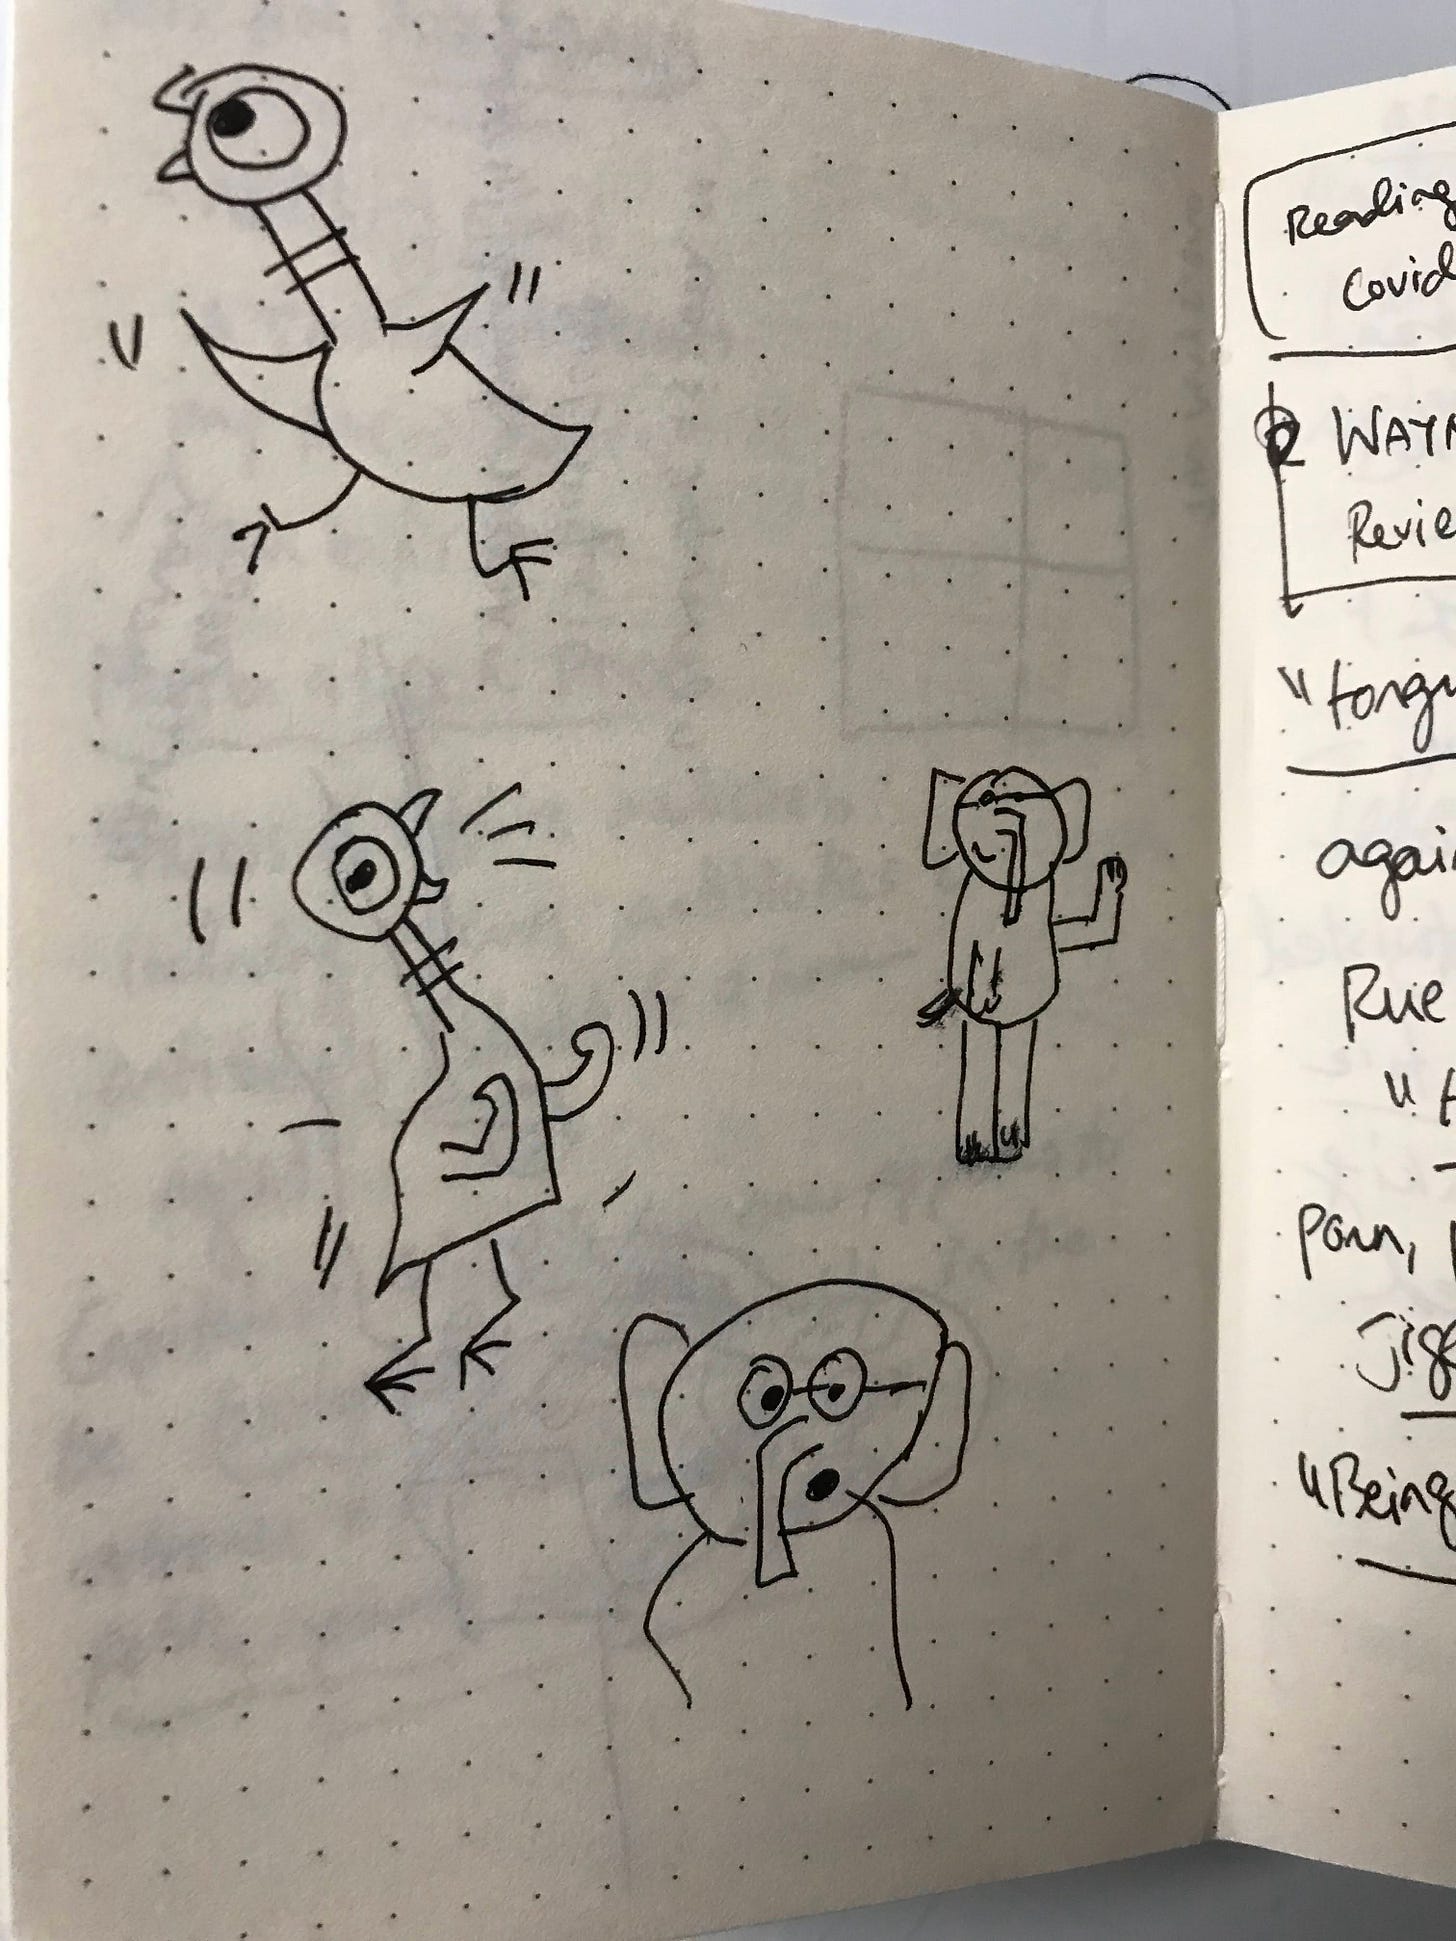 Reading
Covid
WAYN
Revie
"tongu
again
Rue
"t
porn, p
Jigg
"Being